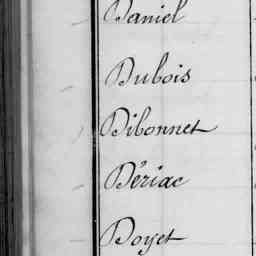 Daniel
Dubois
Dibonnet
Dériac
Doyet